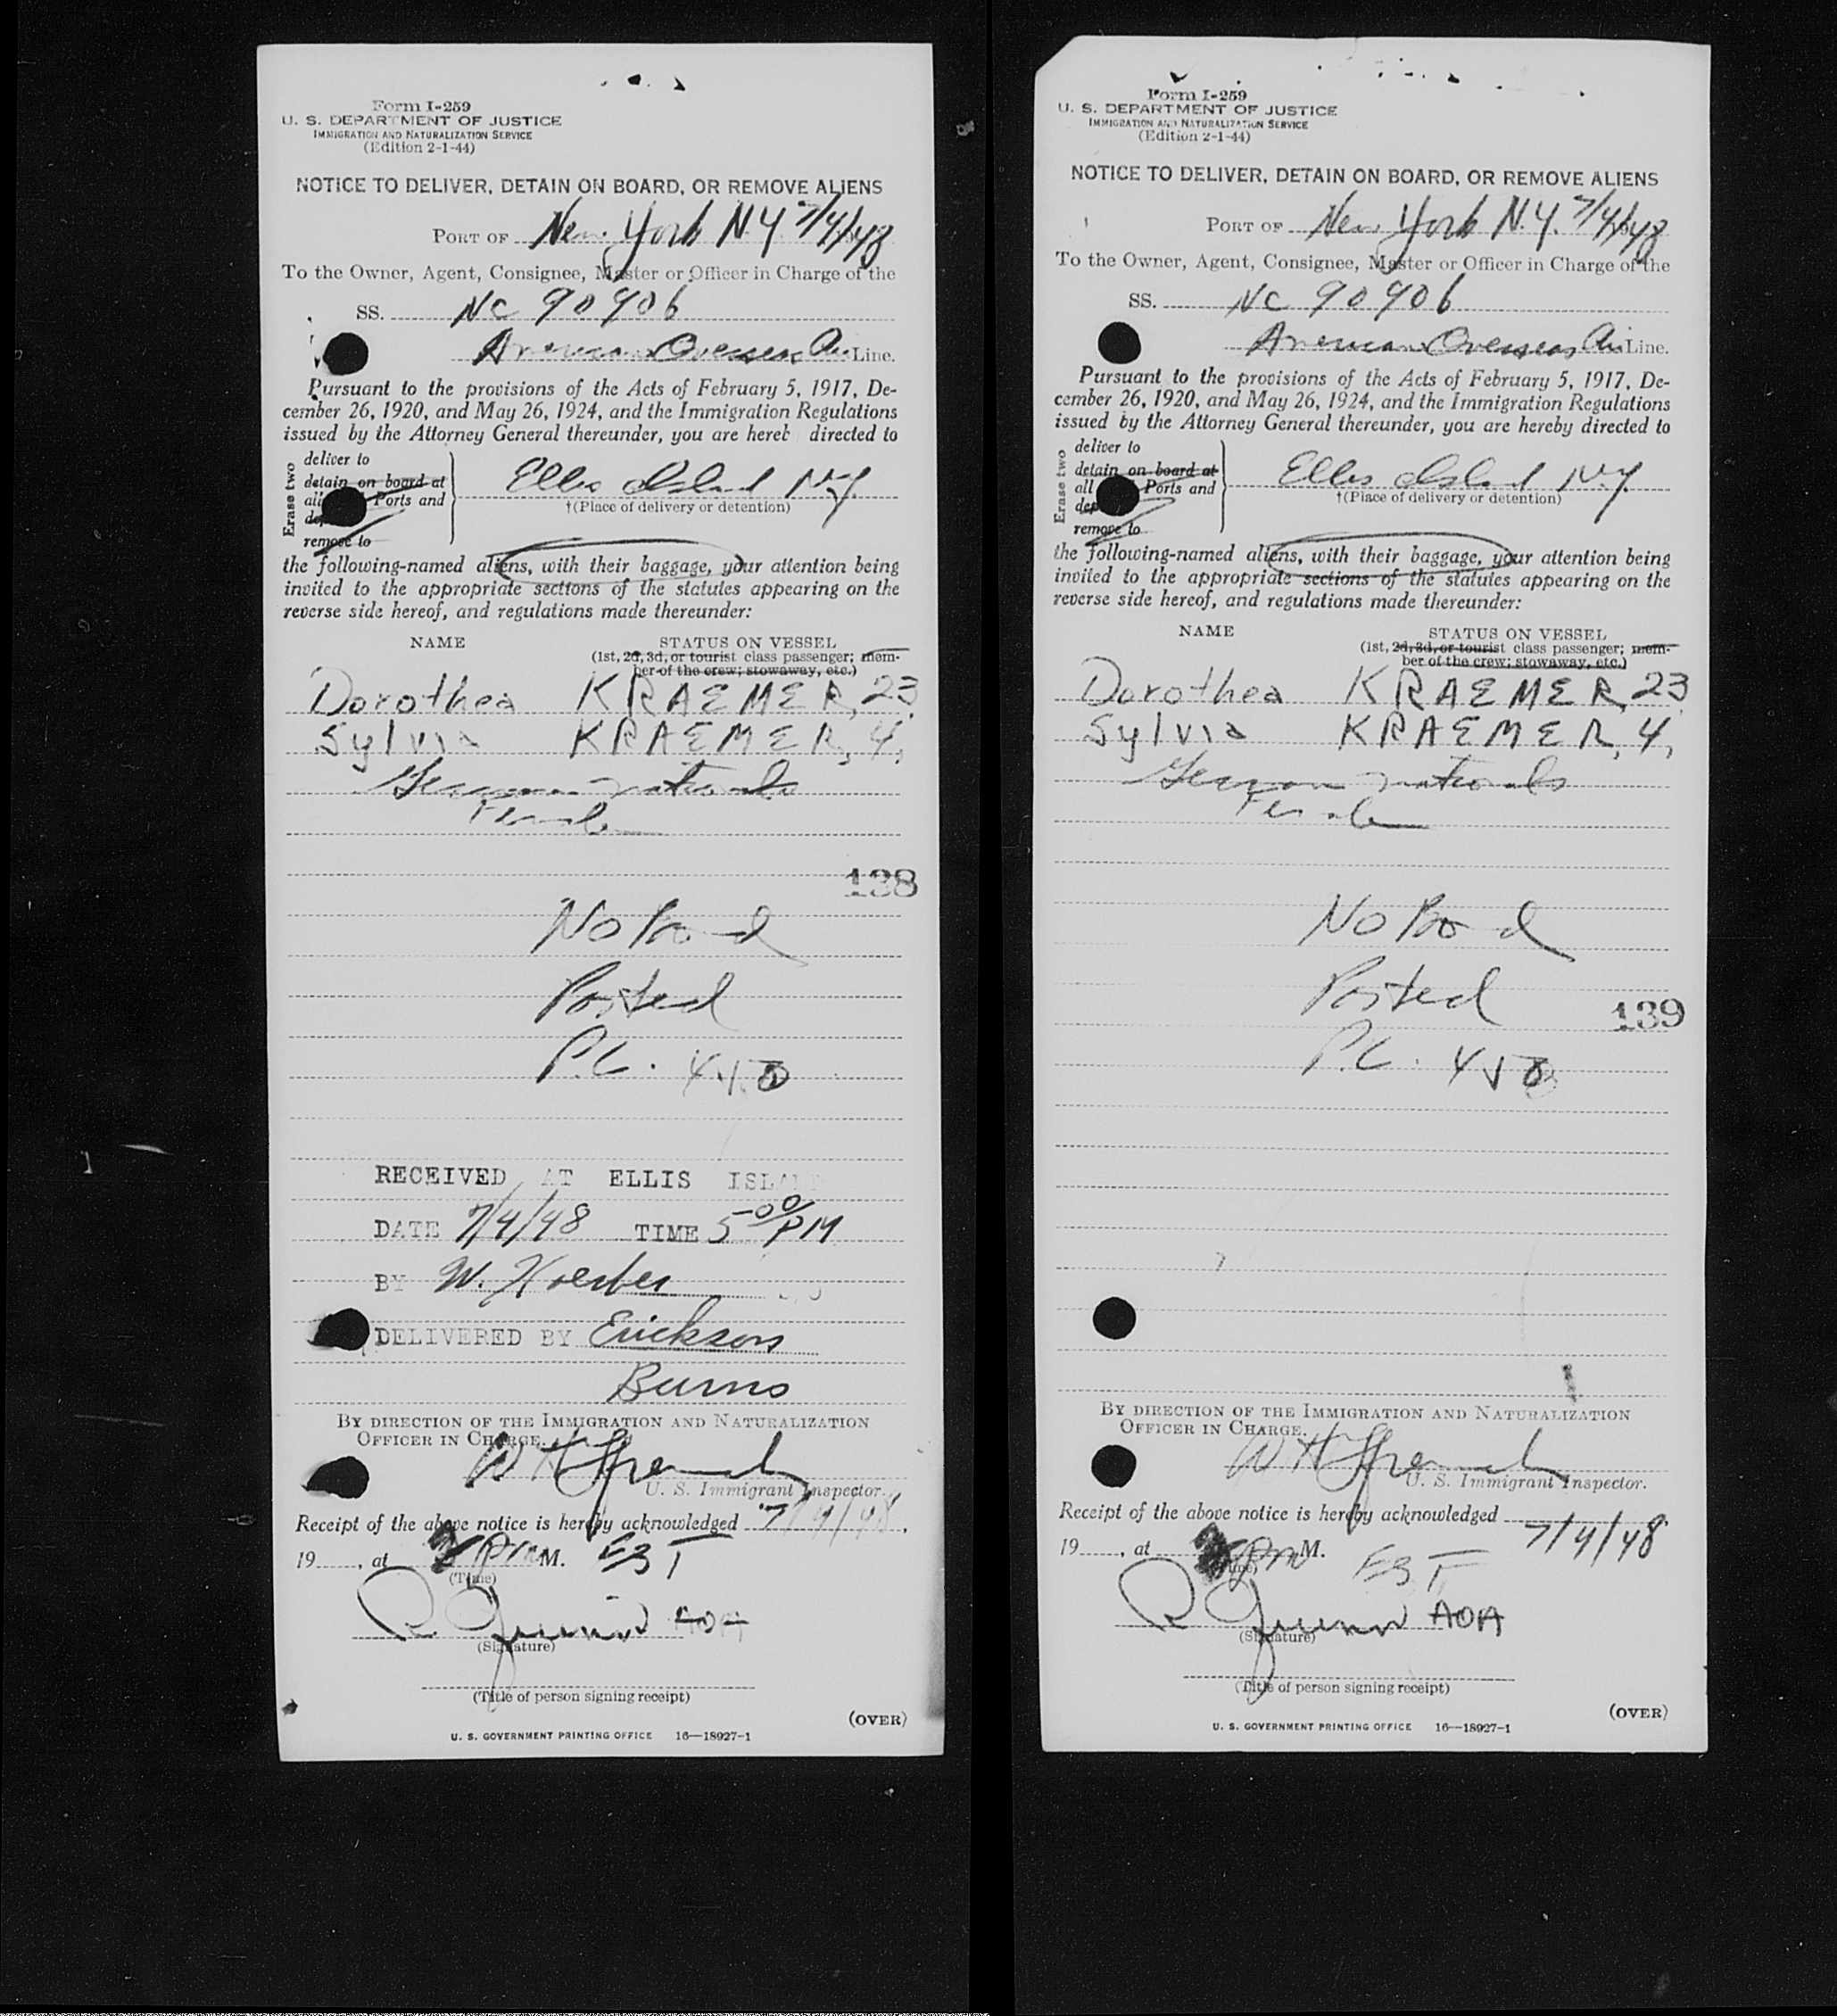 Form I-259
U. S. DEPARTMENT OF JUSTICE
IMMIGRATION AND NATURALIZATION SERVICE
(Edition 2-1-44)
NOTICE TO DELIVER, DETAIN ON BOARD, OR REMOVE ALIENS
PORT OF New York N.Y. 7/4/48
To the Owner, Agent, Consignee, Master or Officer in Charge of the
SS. NC 90906
American Overseas Air Line.
Pursuant to the provisions of the Acts of February 5, 1917, De-
cember 26, 1920, and May 26, 1924, and the Immigration Regulations
issued by the Attorney General thereunder, you are hereb directed to
Erase two
deliver to
detain on board at
all Ports and
remove to
Ellis Island N.Y.
†(Place of delivery or detention)
the following-named aliens, with their baggage, your attention being
invited to the appropriate sections of the statutes appearing on the
reverse side hereof, and regulations made thereunder:
NAME STATUS ON VESSEL
(1st, 2d, 3d, or tourist class passenger; mem-
ber of the crew; stowaway, etc.)
Dorothea KRAEMER, 23
Sylvia KRAEMER, 4,
German nationals
Female
138
No Bond
Posted
P.C.
RECEIVED AT ELLIS ISLAND
DATE 7/4/48 TIME 5 00/PM
BY W.
DELIVERED BY Erickson
Burns
BY DIRECTION OF THE IMMIGRATION AND NATURALIZATION
OFFICER IN CHARGE.
W H
U. S. Immigrant Inspector.
Receipt of the above notice is hereby acknowledged 7/4/48,
19, at PM M. EST
(Time)
R AOA
(Signature)
(Title of person signing receipt)
(OVER)
U. S. GOVERNMENT PRINTING OFFICE 16—18927-1
Form I-259
U. S. DEPARTMENT OF JUSTICE
IMMIGRATION AND NATURALIZATION SERVICE
(Edition 2-1-44)
NOTICE TO DELIVER, DETAIN ON BOARD, OR REMOVE ALIENS
PORT OF New York N.Y. 7/4/48
To the Owner, Agent, Consignee, Master or Officer in Charge of the
SS. NC 90906
American Overseas Air Line.
Pursuant to the provisions of the Acts of February 5, 1917, De-
cember 26, 1920, and May 26, 1924, and the Immigration Regulations
issued by the Attorney General thereunder, you are hereby directed to
Erase two
deliver to
detain on board at
all Ports and
remove to
Ellis Island N.Y.
†(Place of delivery or detention)
the following-named aliens, with their baggage, your attention being
invited to the appropriate sections of the statutes appearing on the
reverse side hereof, and regulations made thereunder:
NAME STATUS ON VESSEL
(1st, 2d, 3d, or tourist class passenger; mem-
ber of the crew; stowaway, etc.)
Dorothea KRAEMER, 23
Sylvia KRAEMER, 4,
German nationals
Female
No Bond
Posted
139
P.C.
BY DIRECTION OF THE IMMIGRATION AND NATURALIZATION
OFFICER IN CHARGE.
W H
U. S. Immigrant Inspector.
Receipt of the above notice is hereby acknowledged
19, at PM M. EST 7/4/48
R AOA
(Signature)
(Title of person signing receipt)
(OVER)
U. S. GOVERNMENT PRINTING OFFICE 16—18927-1